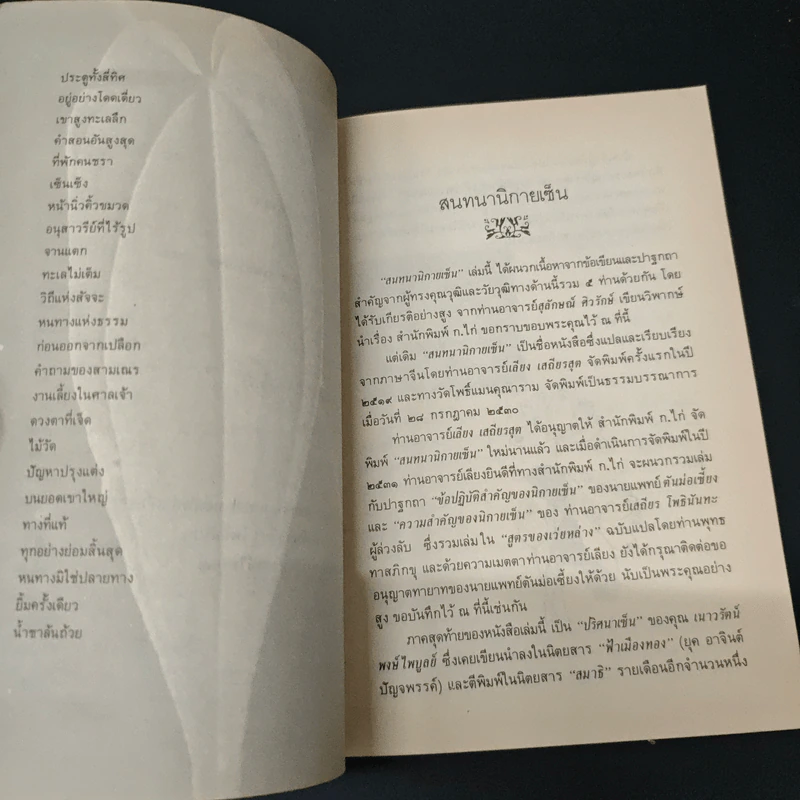 ประตูทั้งสี่ทิศ
อยู่อย่างโดดเดี่ยว
เขาสูงทะเลลึก
คำสอนอันสูงสุด
ที่พักคนชรา
เซ็นเซ็ง
หน้านิ่วคิ้วขมวด
อนุสาวรีย์ที่ไร้รูป
จานแตก
ทะเลไม่เต็ม
วิถีแห่งสัจจะ
หนทางแห่งธรรม
ก่อนออกจากเปลือก
คำถามของสามเณร
งานเลี้ยงในศาลเจ้า
ดวงตาที่เจ็ด
ไม้วัด
ปัญหาปรุงแต่ง
บนยอดเขาใหญ่
ทางที่แท้
ทุกอย่างย่อมสิ้นสุด
หนทางมิใช่ปลายทาง
ยิ้มครั้งเดียว
น้ำชาล้นถ้วย
สนทนานิกายเซ็น
“สนทนานิกายเซ็น” เล่มนี้ ได้ผนวกเนื้อหาจากข้อเขียนและปาฐกถา
สำคัญจากผู้ทรงคุณวุฒิและวัยวุฒิทางด้านนี้รวม ๕ ท่านด้วยกัน โดย
ได้รับเกียรติอย่างสูง จากท่านอาจารย์สุลักษณ์ ศิวรักษ์ เขียนวิพากษ์
นำเรื่อง สำนักพิมพ์ ก.ไก่ ขอกราบขอบพระคุณไว้ ณ ที่นี้
แต่เดิม “สนทนานิกายเซ็น” เป็นชื่อหนังสือซึ่งแปลและเรียบเรียง
จากภาษาจีนโดยท่านอาจารย์เลียง เสถียรสุต จัดพิมพ์ครั้งแรกในปี
๒๕๑๙ และทางวัดโพธิ์แมนคุณาราม จัดพิมพ์เป็นธรรมบรรณาการ
เมื่อวันที่ ๒๘ กรกฎาคม ๒๕๓๐
ท่านอาจารย์เลียง เสถียรสุต ได้อนุญาตให้ สำนักพิมพ์ ก.ไก่ จัด
พิมพ์ “สนทนานิกายเซ็น” ใหม่นานแล้ว และเมื่อดำเนินการจัดพิมพ์ในปี
๒๕๓๑ ท่านอาจารย์เลียงยินดีที่ทางสำนักพิมพ์ ก.ไก่ จะผนวกรวมเล่ม
กับปาฐกถา “ข้อปฏิบัติสำคัญของนิกายเซ็น” ของนายแพทย์ตันม่อเซี้ยง
และ “ความสำคัญของนิกายเซ็น” ของ ท่านอาจารย์เสถียร โพธินันทะ
ผู้ล่วงลับ ซึ่งรวมเล่มใน “สูตรของเว่ยหล่าง” ฉบับแปลโดยท่านพุทธ
ทาสภิกขุ และด้วยความเมตตาท่านอาจารย์เลียง ยังได้กรุณาติดต่อขอ
อนุญาตทายาทของนายแพทย์ตันม่อเซี้ยงให้ด้วย นับเป็นพระคุณอย่าง
สูง ขอบันทึกไว้ ณ ที่นี้เช่นกัน
ภาคสุดท้ายของหนังสือเล่มนี้ เป็น “ปริศนาเซ็น” ของคุณ เนาวรัตน์
พงษ์ไพบูลย์ ซึ่งเคยเขียนนำลงในนิตยสาร “ฟ้าเมืองทอง” (ยุค อาจินต์
ปัญจพรรค์) และตีพิมพ์ในนิตยสาร “สมาธิ” รายเดือนอีกจำนวนหนึ่ง